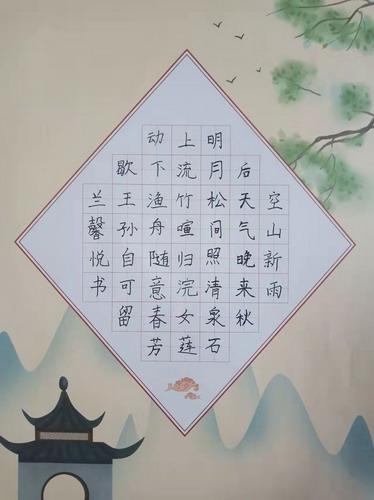 空山新雨
后天气晚来秋
明月松间照清泉石
上流竹喧归浣女莲
动下渔舟随意春芳
歇王孙自可留
兰馨悦书